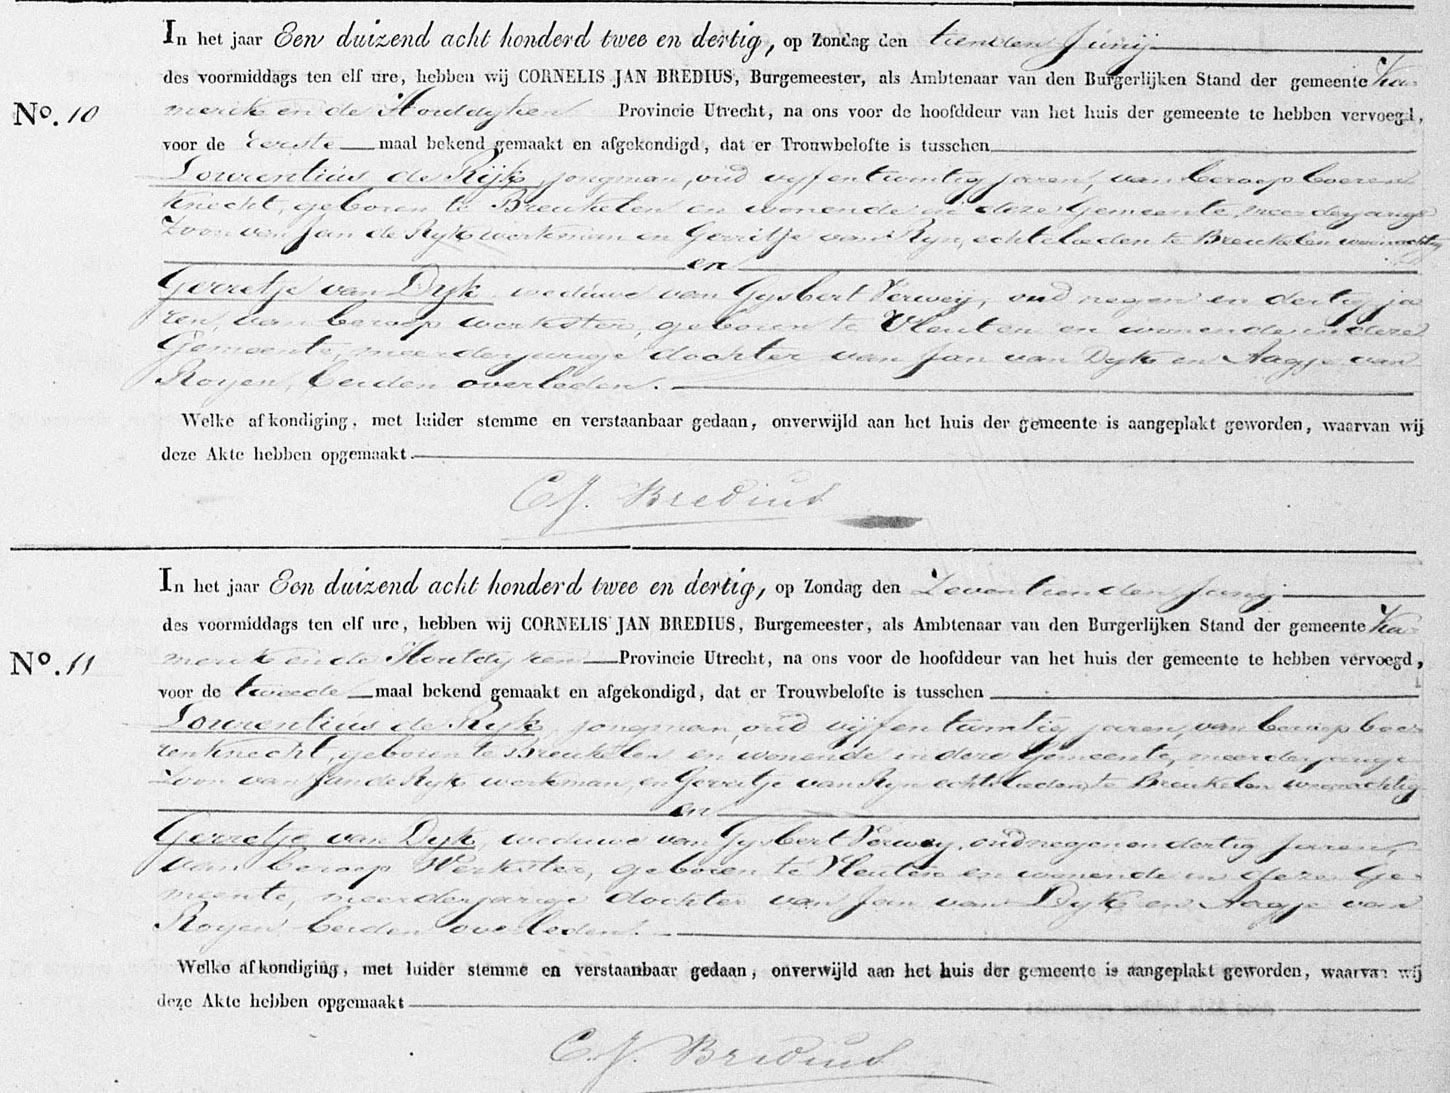 In het jaar Een duizend acht honderd twee en dertig, op Zondag den tienden Junij
des voormiddags ten elf ure, hebben wij CORNELIS JAN BREDIUS, Burgemeester, als Ambtenaar van den Burgerlijken Stand der gemeente Ka-
No. 10 merik en de Houtdyken Provincie Utrecht, na ons voor de hoofddeur van het huis der gemeente te hebben vervoegd,
voor de Eerste maal bekend gemaakt en afgekondigd, dat er Trouwbelofte is tusschen
Lourentius de Rijk, jongman, oud vyf en twintig jaren, van beroep boeren
knecht, geboren te Breukelen en wonende in deze Gemeente, meerderjarige
Zoon van Jan de Ryk workman en Gerritje van Ryn, echtelieden te Breukelen woonachtig
en
Gerretje van Dyk, weduwe van Gysbert Verwey, oud negen en dertig ja
ren, van beroep werkster, geboren te Vleuten en wonende in deze
Gemeente, meerderjarige dochter van Jan van Dyk en Aagje van
Royen, beiden overleden.
Welke afkondiging, met luider stemme en verstaanbaar gedaan, onverwijld aan het huis der gemeente is aangeplakt geworden, waarvan wij
deze Akte hebben opgemaakt.
C J. Bredius
In het jaar Een duizend acht honderd twee en dertig, op Zondag den Zeventienden Junij
des voormiddags ten elf ure, hebben wij CORNELIS JAN BREDIUS, Burgemeester, als Ambtenaar van den Burgerlijken Stand der gemeente Ka-
No. 11 merik en de Houtdyken Provincie Utrecht, na ons voor de hoofddeur van het huis der gemeente te hebben vervoegd,
voor de tweede maal bekend gemaakt en afgekondigd, dat er Trouwbelofte is tusschen
Lourentius de Ryk, jongman, oud vijf en twintig jaren, van beroep boe-
renknecht, geboren te Breukelen en wonende in deze Gemeente, meerderjarige
Zoon van Jan de Ryk workman, en Gerretje van Ryn echtelieden te Breukelen woonachtig
en
Gerretje van Dyk, weduwe van Gysbert Verwey, oud negen en dertig Jaren,
van beroep Werkster, geboren te Vleuten en wonende in deze Ge-
meente, meerderjarige dochter van Jan van Dyk en Aagje van
Royen beiden overleden.
Welke afkondiging, met luider stemme en verstaanbaar gedaan, onverwijld aan het huis der gemeente is aangeplakt geworden, waarvan wij
deze Akte hebben opgemaakt
C. J. Bredius